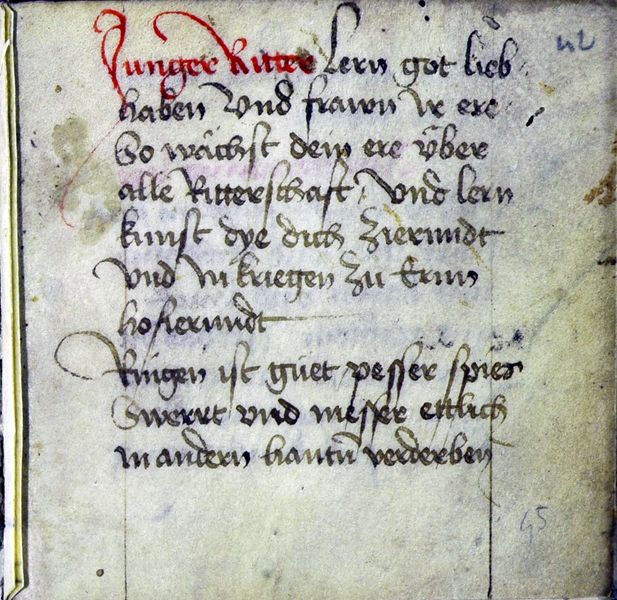 42
Junger Ritter lern got lieb
haben Vnd frawn Ir ere
So wächst dein ere Vber
alle Ritterschaft Vnd lern
kunst dye dich Zierundt
Vnd In kriegen Zu Ernn
hofierundt
Ringen ist guet pesser spies
Swerrt vnd messer ettlich
In andern hantñ verderben
45